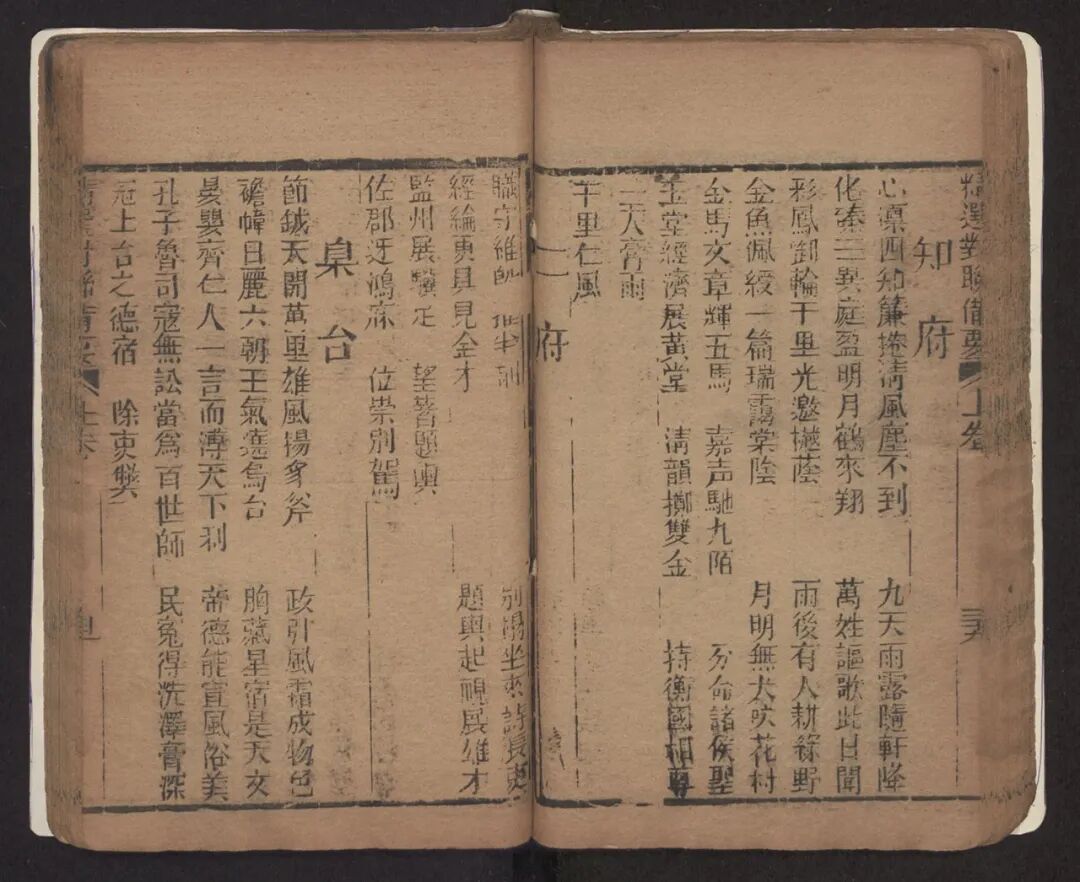 精選對聯備要 上卷
知府
心凜四知簾捲清風塵不到 九天雨露隨軒降
化臻三異庭盈明月鶴來翔 萬姓謳歌此日聞
彩鳳卸輪千里光邀樾蔭 雨後有人耕綠野
金魚佩綬一篇瑞靄棠陰 月明無犬吠花村
金馬文章輝五馬 嘉声馳九陌 分命諸侯聖
玉堂經濟展黃堂 清韻擲雙金 持衡國相尊
二天膏雨
千里仁風
二府
職守維 別 坐來
經綸更具見全才 題輿起硯展雄才
監州展驥足 望著題輿
佐郡迓鴻庥 位崇別駕
臬台
節鉞天開萬里雄風揚豸斧 政引風霜成物色
襜幃日麗六朝王氣遶烏台 胸藏星宿是天文
晏嬰齊仁人一言而溥天下利 帝德能宣風俗美
孔子魯司寇無訟當為百世師 民冤得洗澤膏深
冠上台之德宿 除吏
精選對聯備要 上卷